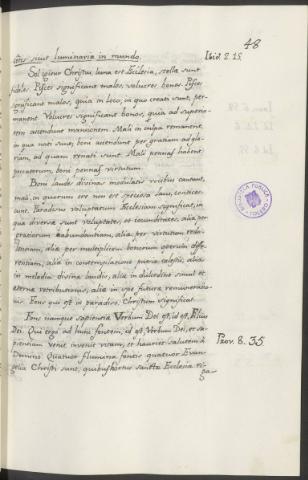 48
citis sicut luminaria in mundo.
Ibid. 2. 15.
Sol igitur Christus, luna est Ecclesia, stellæ sunt
fideles. Pisces significant malos, volucres bonos. Pisces
significant malos, quia in loco, in quo creati sunt, per-
manent. Volucres significant bonos, quia ad superio-
rem ascendunt mansionem. Mali in culpa remanent,
in qua nati sunt, boni ascendunt per gratiam ad glo-
riam, ad quam renati sunt. Mali pennas habent
peccatorum, boni pennas virtutum.
Boni laudes divinas modulatis vocibus cantant,
mali, in quorum ore non est speciosa laus, contices-
cunt. Paradisus voluptatum Ecclesiam significat, in
qua diversæ sunt voluptates, et jucunditates, alia per
gratiarum abundantiam, alia per virtutum redo-
lentiam, alia per multiplicem bonorum operum diffe-
rentiam, alia in contemplatione puræ cælesti, alia
in melodia divinæ laudis, alia in dulcedine simul et
æternæ retributionis, alia in spe futuræ remuneratio-
nis. Fons qui est in paradiso, Christum significat.
Fons namque sapientiæ Verbum Dei est, id est, Filius
Dei. Qui ergo ad hunc fontem, id est, Verbum Dei, et sa-
pientiam venit invenit vitam, et hauriet salutem à
Domino. Quatuor flumina fontis quatuor Evan-
Prov. 8. 35
gelia Christi sunt, quibus hortus sanctæ Ecclesiæ ri-
ga-
BIBLIOTECA PUBLICA
TOLEDO